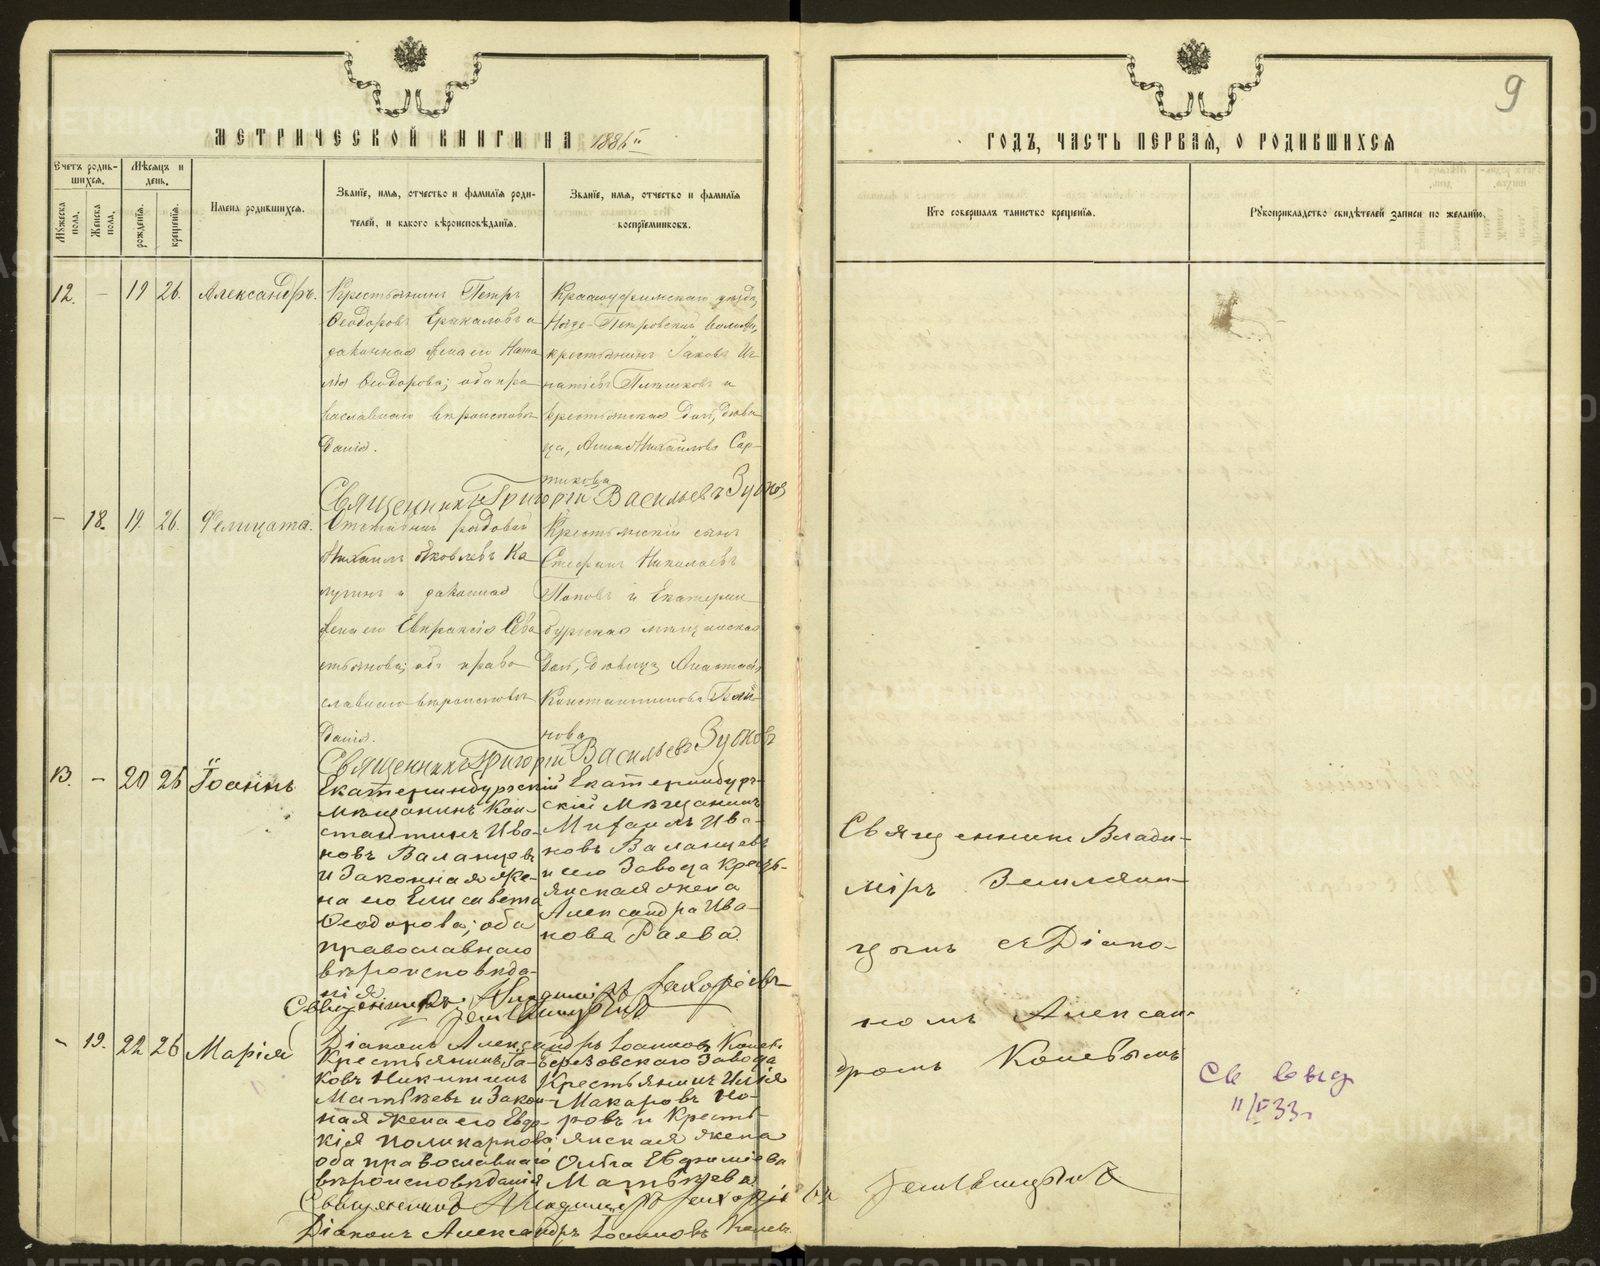 9
МЕТРИЧЕСКОЙ КНИГИ НА 1886
ГОДЪ, ЧАСТЬ ПЕРВАЯ, О РОДИВШИХСЯ
Счетъ родившихся.
Мужеска пола.
Женска пола.
Мѣсяцъ и день.
рожденія.
крещенія.
Имена родившихся.
Званіе, имя, отчество и фамилія роди-
телей, и какого вѣроисповѣданія.
Званіе, имя, отчество и фамилія
воспріемниковъ.
Кто совершалъ таинство крещенія.
Рукоприкладство свидѣтелей записи по желанію.
12. – 19 26. Александръ.
Крестьянинъ Петръ
Ѳеодоровъ и
законная жена его Ната-
лія Ѳеодорова; оба пра-
вославнаго вѣроисповѣ-
данія.
Красноуфимскаго уѣзда,
Петровской волости,
крестьянинъ Іаковъ Иг-
натіевъ и
крестьянская дочь, дѣви-
ца, Анна Михайлова Сар-
тикова
Священникъ Григорій Васильевъ Зубковъ
– 18. 19. 26. Фелицата.
Отставной рядовой
Михаилъ Яковлевъ Ка-
лугинъ и законная
жена его Евпраксія Сева-
стьянова; оба право-
славнаго вѣроисповѣ-
данія.
Крестьянскій сынъ
Стефанъ Николаевъ
Поповъ и Екатерин-
бургская мѣщанская
дочь, дѣвица, Анастасія
Константинова
нова
Священникъ Григорій Васильевъ Зубковъ
13. – 20 26 Іоаннъ
Екатеринбургскій
мѣщанинъ Кон-
стантинъ Ива-
новъ Валанцевъ
и законная же-
на его Елисавета
Ѳеодорова; оба
православнаго
вѣроисповѣда-
нія.
Екатеринбург-
скій мѣщанинъ
Михаилъ Ива-
новъ Валанцевъ
и сего завода кресть-
янская жена
Александра Ива-
нова Раева.
Священникъ Владиміръ Захаріевъ
Земляницынъ
Діаконъ Александръ Іоанновъ Коневъ
– 19. 22 26 Марія
Крестьянинъ Іа-
ковъ Никитинъ
Матвѣевъ и закон-
ная жена его Евдо-
кія Поликарпова
оба православнаго
вѣроисповѣданія
Березовскаго завода
крестьянинъ Илія
Макаровъ По-
ровъ и кресть-
янская жена
Ольга Евфиміева
Матвѣева.
Священникъ Владиміръ Захаріевъ
Діаконъ Александръ Іоанновъ Коневъ
Священникъ Влади-
міръ Земляни-
цынъ съ Діако-
номъ Алексан-
дромъ Коневымъ
Земляницынъ
Св выд
11/V 33г